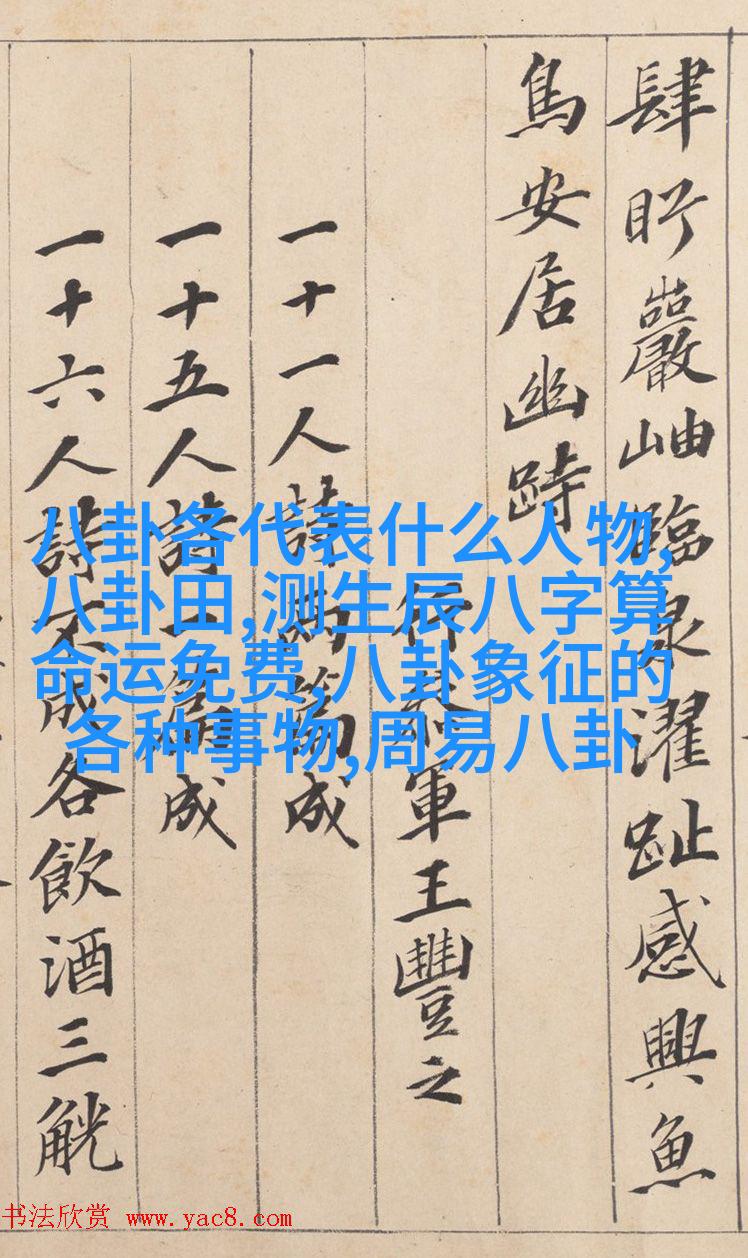 肆盻巖岫臨泉濯趾感興魚
鳥安居幽跱
行參軍王豐之
一十一人詩兩篇成
一十五人詩一篇成
一十六人詩不成各飲酒三觥
八卦各代表什么人物,
八卦田,测生辰八字算
命运免费,八卦象征的
各种事物,周易八卦
书法欣赏 www.yac8.com